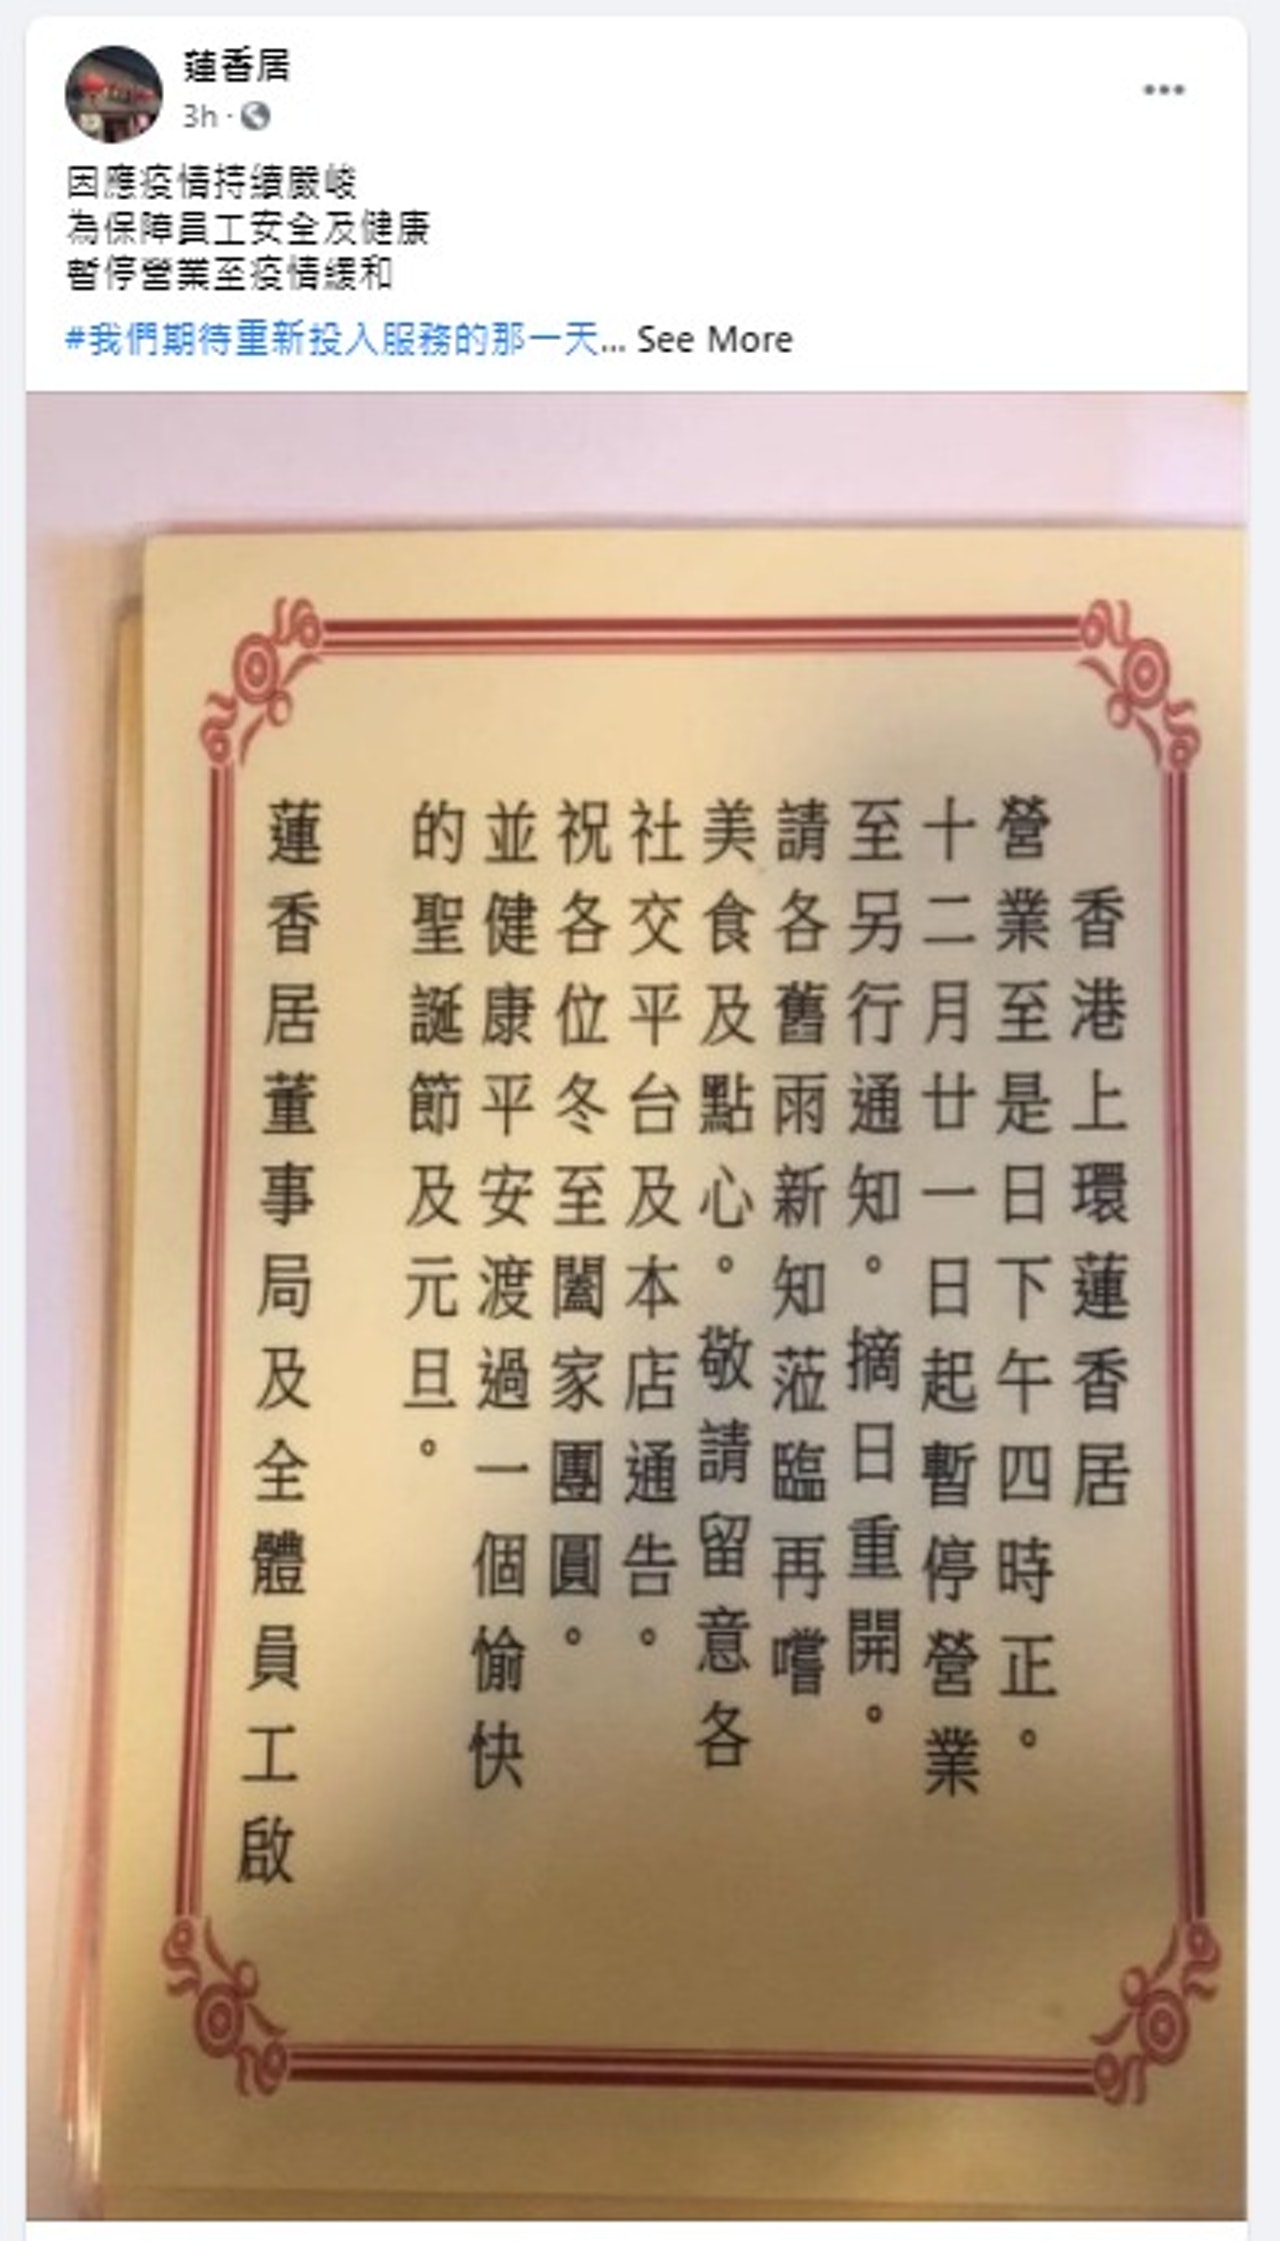 蓮香居
3h
因應疫情持續嚴峻
為保障員工安全及健康
暫停營業至疫情緩和
#我們期待重新投入服務的那一天... See More
香港上環蓮香居
營業至是日下午四時正。
十二月廿一日起暫停營業
至另行通知。摘日重開。
請各舊雨新知蒞臨再嚐
美食及點心。敬請留意各
社交平台及本店通告。
祝各位冬至闔家團圓。
並健康平安渡過一個愉快
的聖誕節及元旦。
蓮香居董事局及全體員工啟